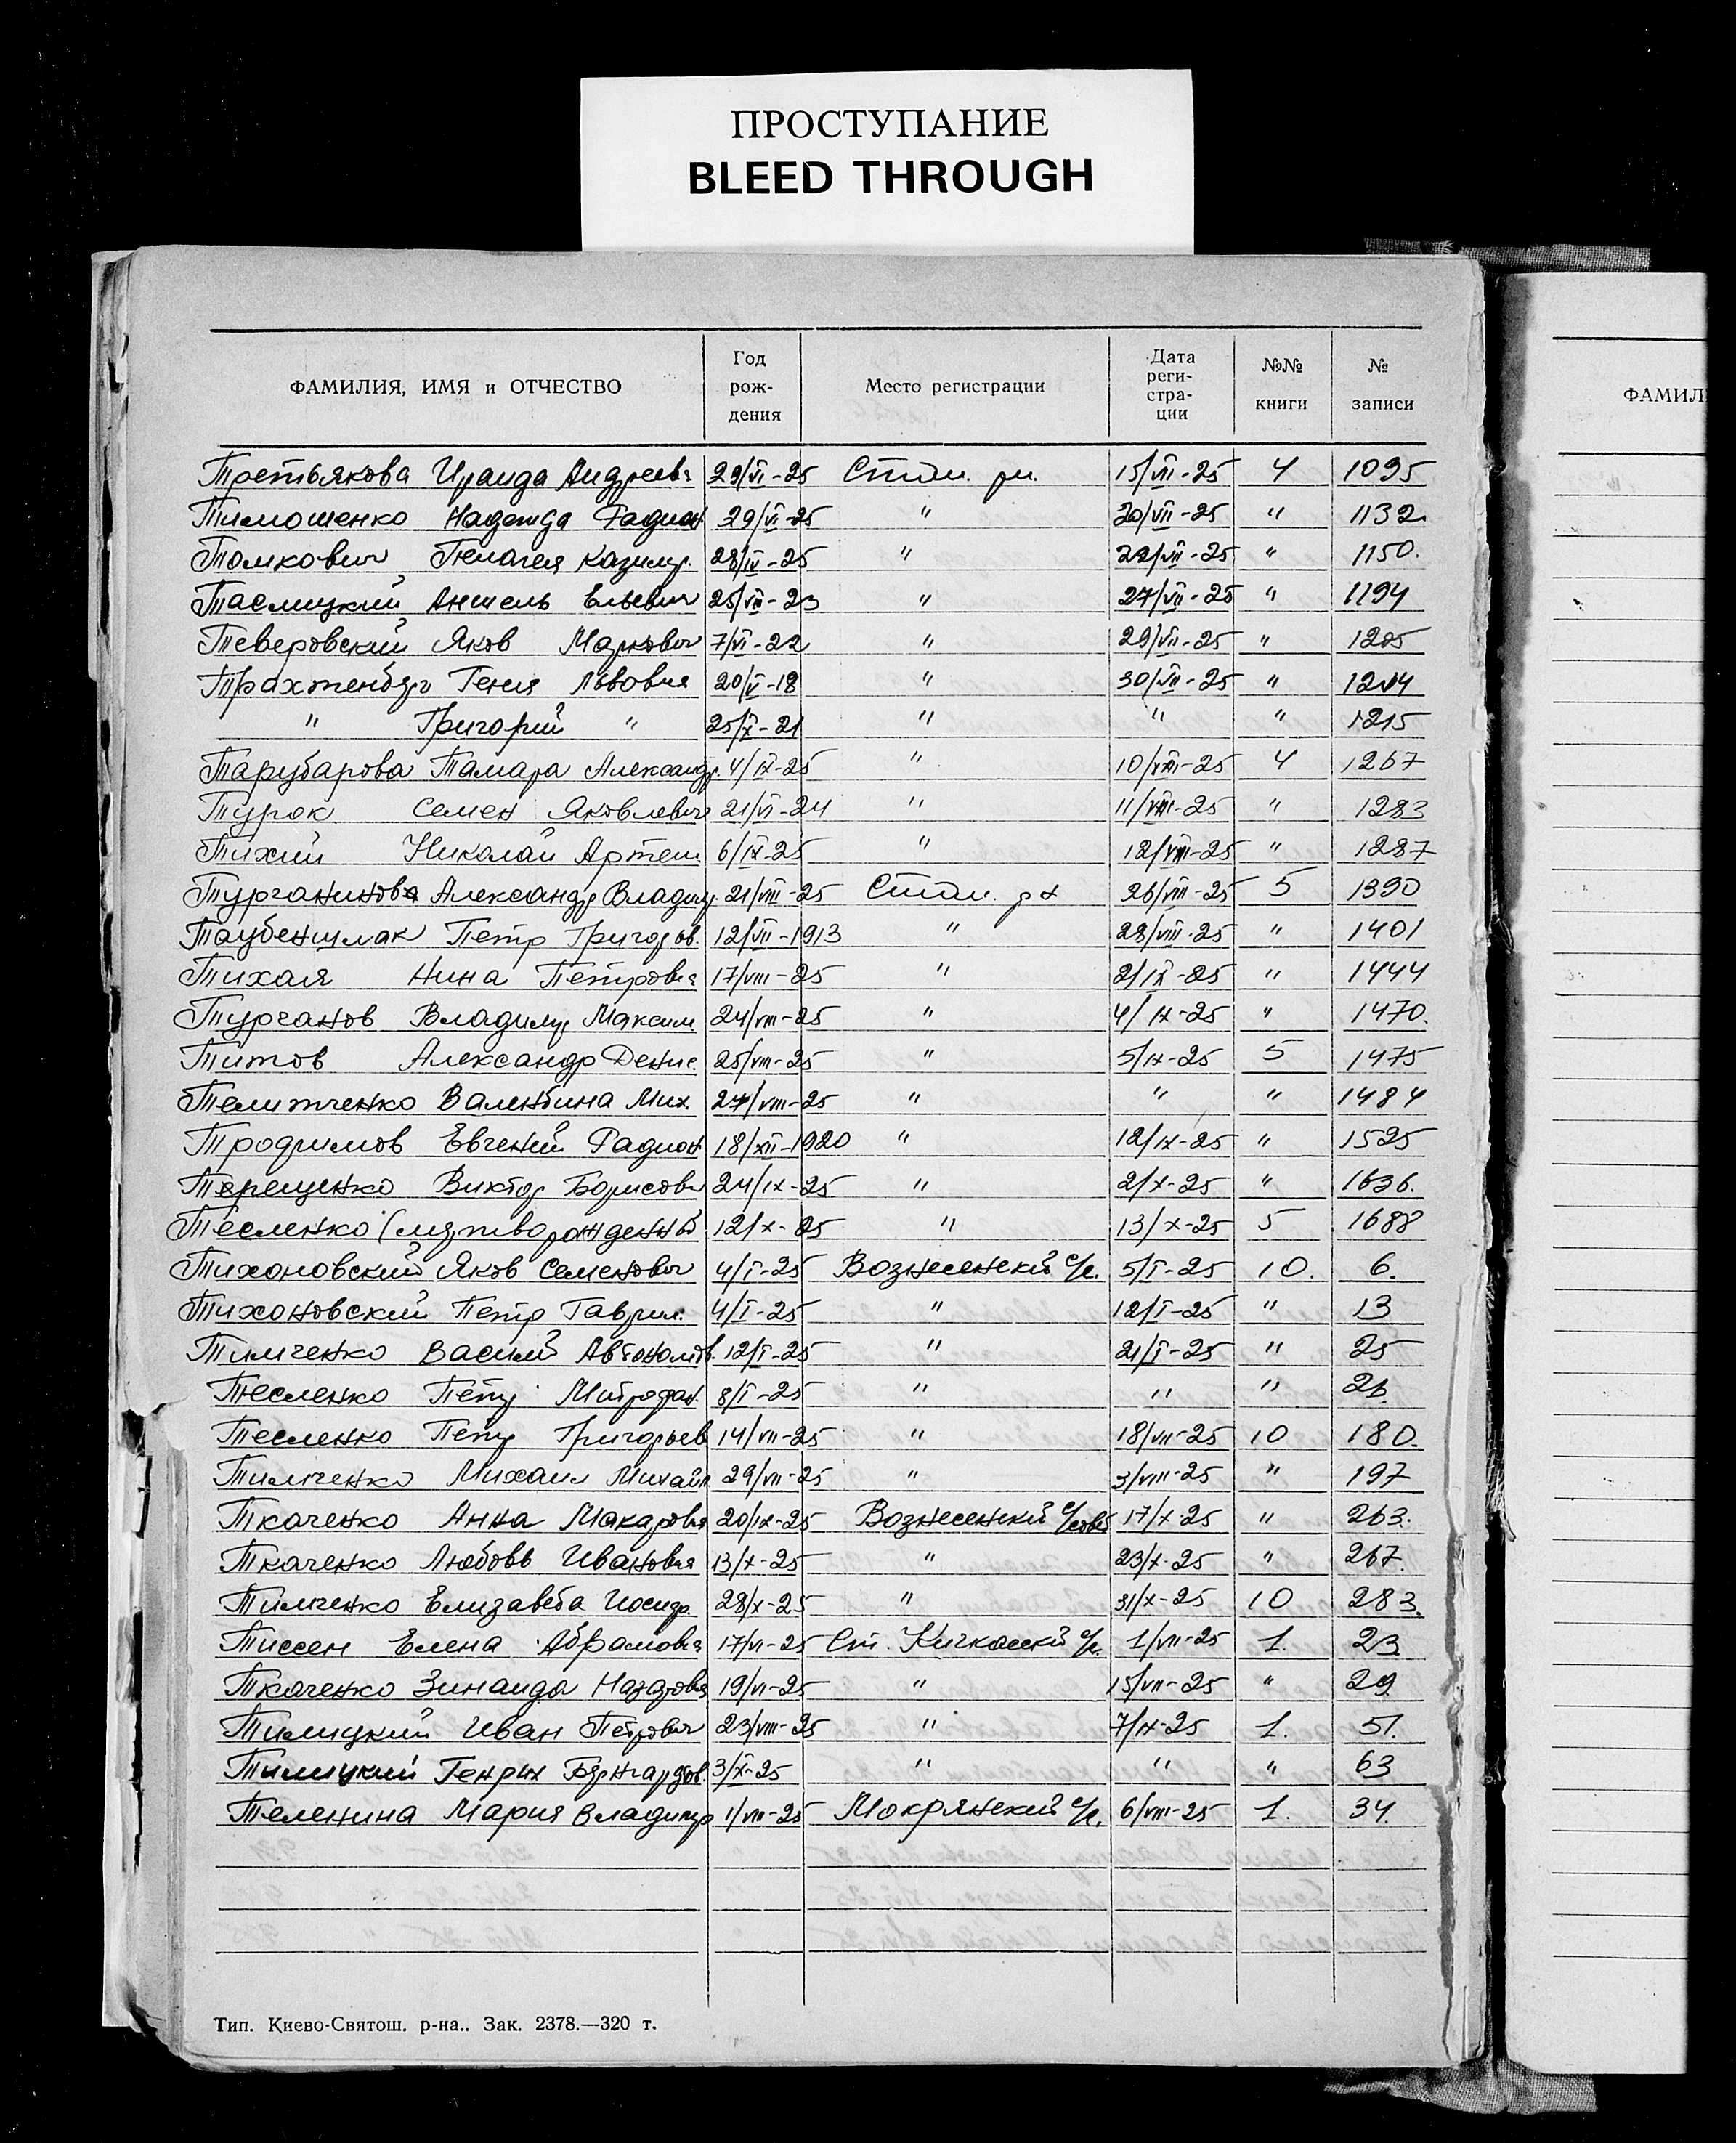 ПРОСТУПАНИЕ
BLEED THROUGH
ФАМИЛИЯ, ИМЯ и ОТЧЕСТВО Год рож-дения Место регистрации Дата реги-стра-ции №№ книги № записи
ФАМИЛ
Третьякова Ираида Андреевн 29/VI-25 Стол. рн. 15/VII-25 4 1095
Тимошенко Надежда Радион 29/VI-25 " 20/VII-25 " 1132
Томкович Пелагея Казимир. 28/IV-25 " 22/VII-25 " 1150.
Таслицкий Аншель Ельевич 25/VII-23 " 27/VII-25 " 1194
Теверовский Яков Маркович 7/VI-22 " 29/VII-25 " 1205
Трахтенберг Геня Львовна 20/V-18 " 30/VII-25 " 1214
" Григорий " 25/X-21 " " " 1215
Тарубарова Тамара Александр. 4/IX-25 " 10/VIII-25 4 1267
Турок Семен Яковлевич 21/VI-24 " 11/VIII-25 " 1283
Тихий Николай Артем 6/IX-25 " 12/VIII-25 " 1287
Турганинова Александр Владимир. 21/VIII-25 Стол. рн 26/VIII-25 5 1390
Таубеншлак Петр Григорьев. 12/VII-1913 " 28/VIII-25 " 1401
Тихая Нина Петровна 17/VIII-25 " 2/IX-25 " 1444
Турчанов Владимир Максим 24/VIII-25 " 4/IX-25 " 1470.
Титов Александр Денис. 25/VIII-25 " 5/IX-25 5 1475
Телитченко Валентина Мих. 27/VIII-25 " " " 1484
Трофимов Евгений Радион 18/XII-1920 " 12/IX-25 " 1525
Терещенко Виктор Борисович 24/IX-25 " 2/X-25 " 1636.
Тесленко (мертворожденный 12/X-25 " 13/X-25 5 1688
Тихоновский Яков Семенович 4/I-25 Вознесенский с/с. 5/I-25 10. 6.
Тихоновский Петр Гаврил. 4/I-25 " 12/I-25 " 13
Тимченко Василий Автономов. 12/I-25 " 21/I-25 " 25
Тесленко Петр Митрофан. 8/I-25 " " " 26.
Тесленко Петр Григорьев 14/VII-25 " 18/VII-25 10 180.
Тимченко Михаил Михайл 29/VII-25 " 3/VIII-25 " 197
Ткаченко Анна Макаровна 20/IX-25 Вознесенский с/совет 17/X-25 " 263.
Ткаченко Любовь Ивановна 13/X-25 " 23/X-25 " 267.
Тимченко Елизавета Иосиф. 28/X-25 " 31/X-25 10 283.
Тиссен Елена Абрамовна 17/VI-25 Ст. Кичкасский с/с. 1/VII-25 1. 23
Ткаченко Зинаида Назаровна 19/VI-25 " 15/VII-25 " 29
Тилицкий Иван Петрович 23/VIII-25 " 7/IX-25 1. 51.
Тилицкий Генрих Бернгардов. 3/X-25 " " " 63
Теленина Мария Владимир 1/VIII-25 Мокрянский с/с. 6/VIII-25 1. 34.
Тип. Киево-Святош. р-на.. Зак. 2378.—320 т.